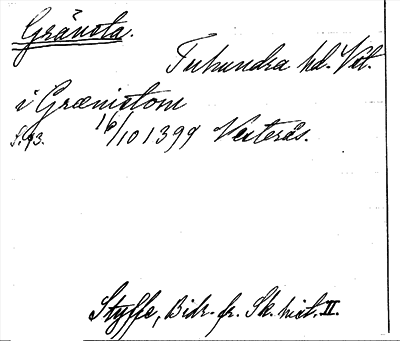 Gränsta.
Tuhundra hd. Vst.
i Grænistom
s. 93. 16/10 1399 Vesterås.
Styffe, Bidr. fr. Sk. hist. II.